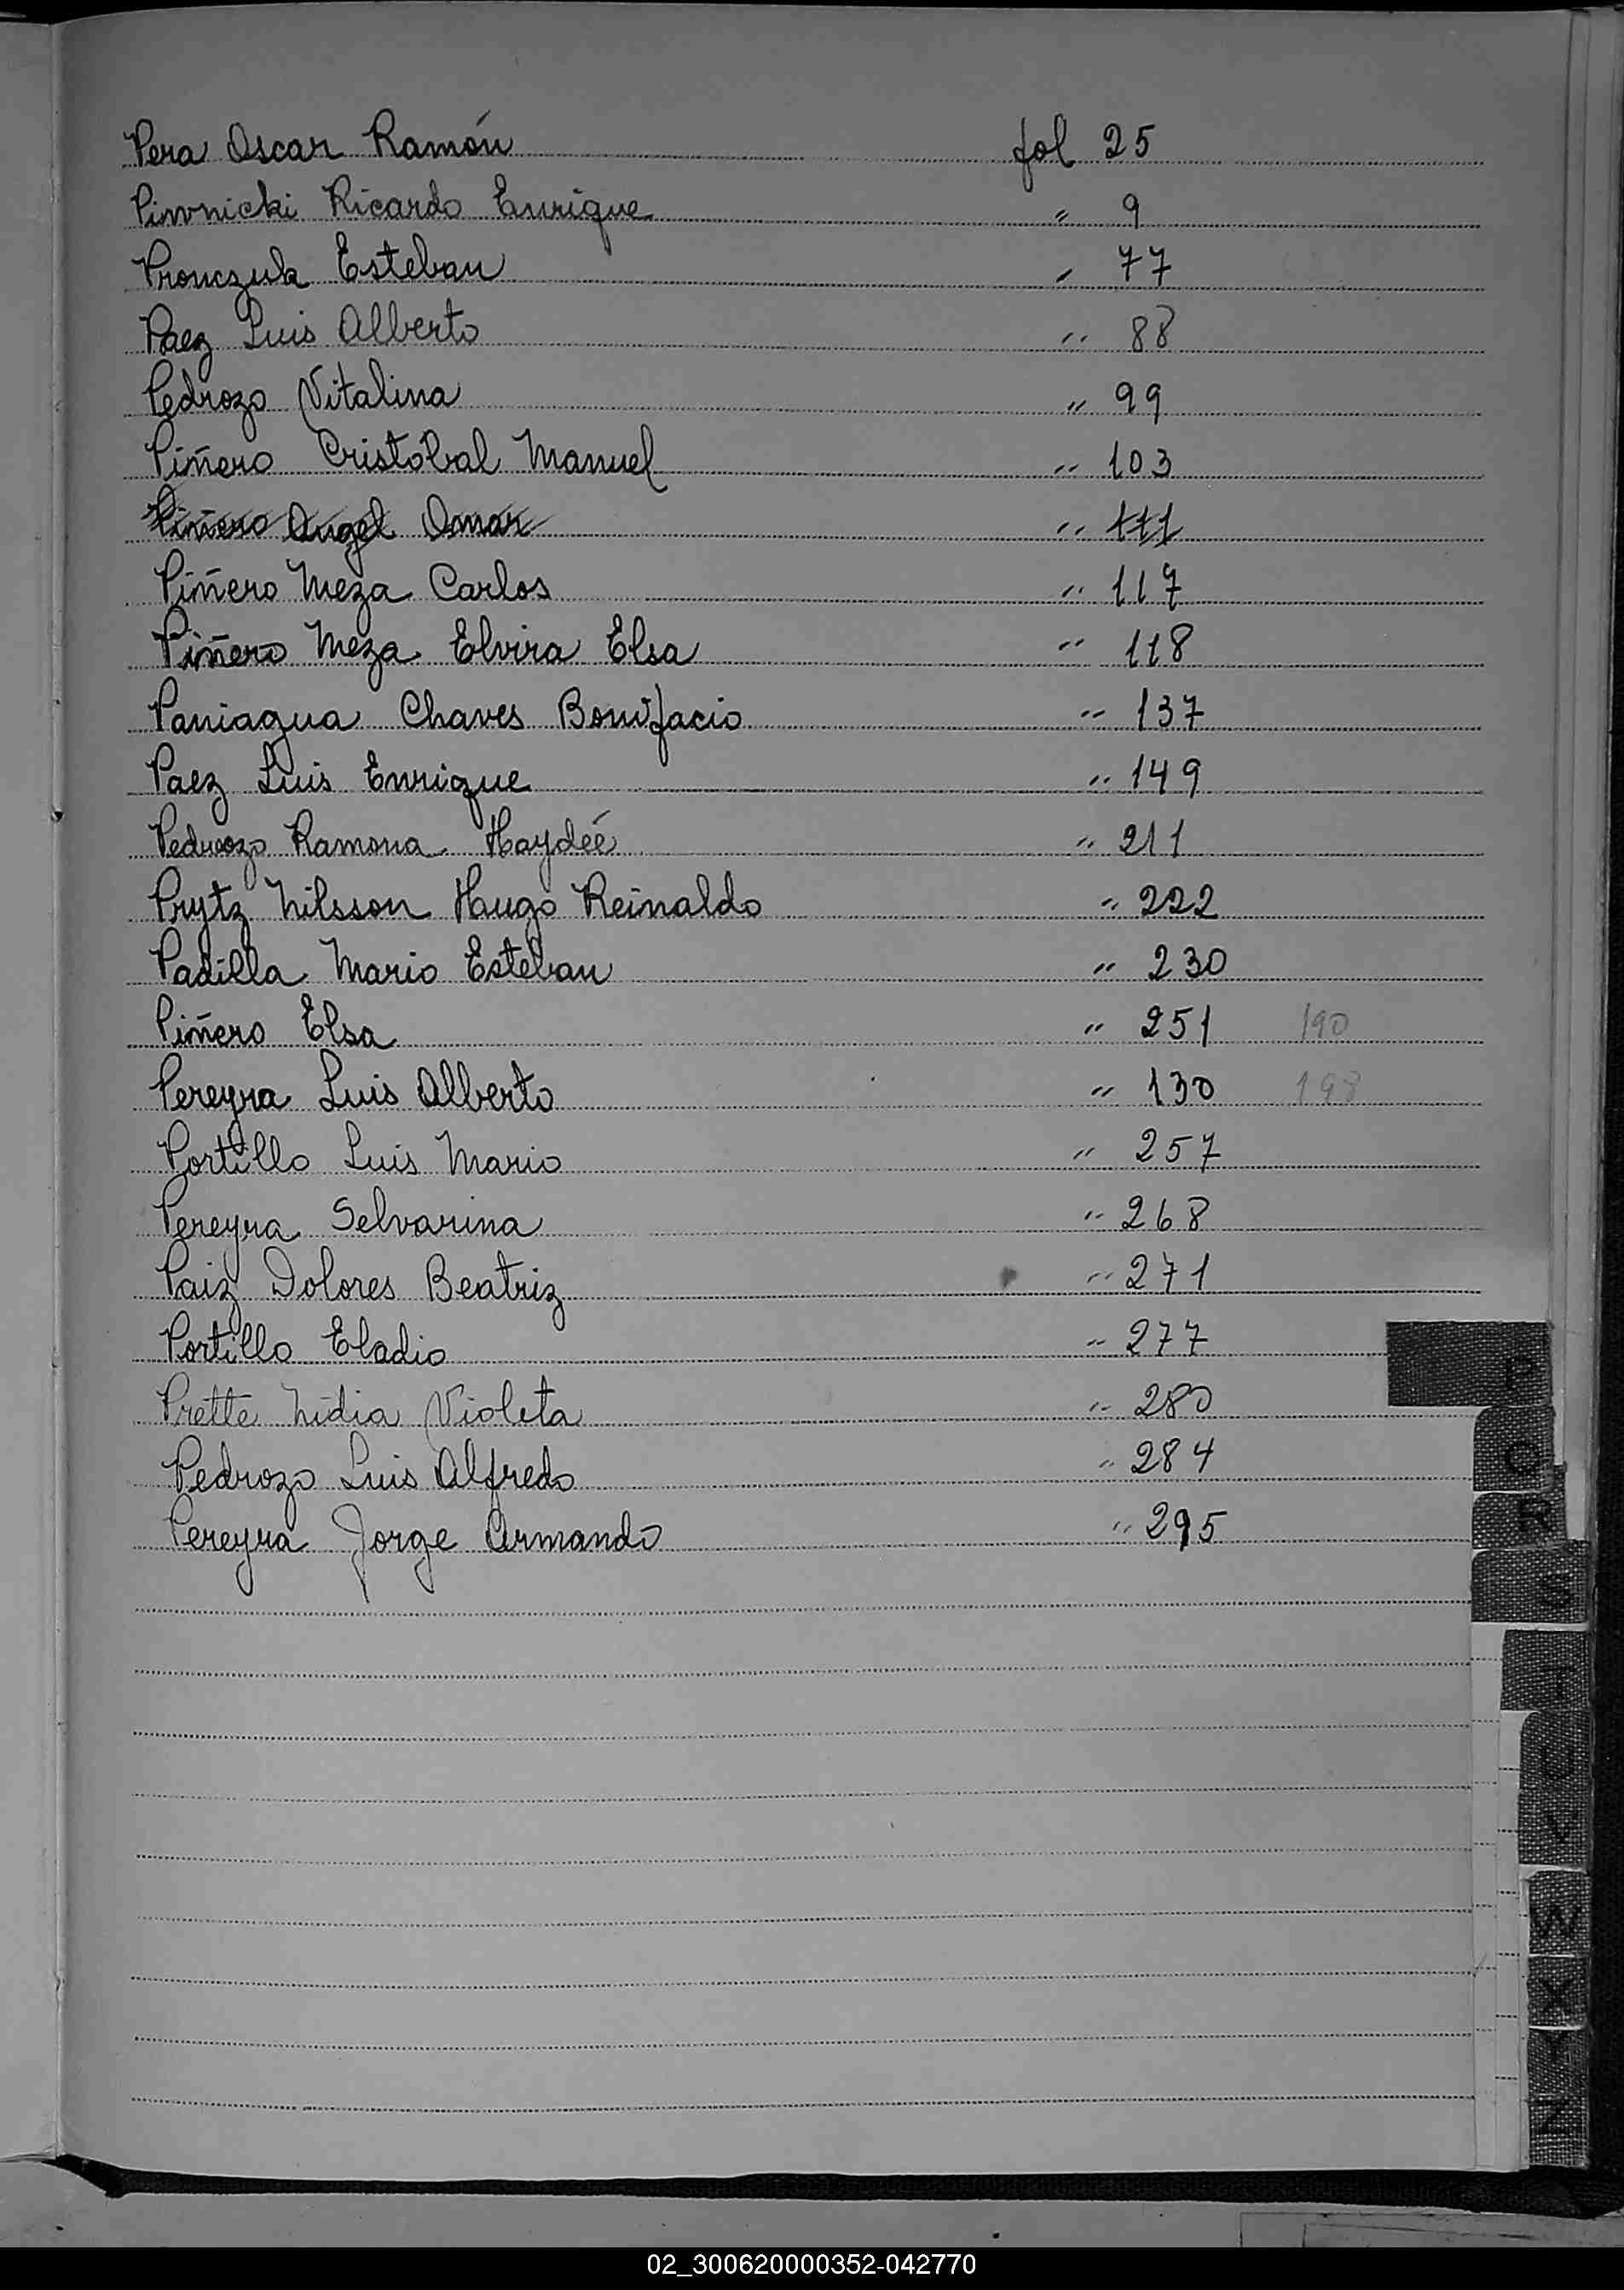 Pera Oscar Ramón fol 25
Piwnicki Ricardo Enrique " 9
Pronczuk Esteban " 77
Paez Luis Alberto " 88
Pedrozo Vitalina " 99
Piñero Cristobal Manuel " 103
Piñero Angel Omar " 111
Piñero Meza Carlos " 117
Piñero Meza Elvira Elsa " 118
Paniagua Chaves Bonifacio " 137
Paez Luis Enrique " 149
Pedrozo Ramona Haydeé " 211
Prytz Nilsson Hugo Reinaldo " 222
Padilla Mario Esteban " 230
Piñero Elsa " 251 190
Pereyra Luis Alberto " 130 198
Portillo Luis Mario " 257
Pereyra Selvarina " 268
Paiz Dolores Beatriz " 271
Portillo Eladio " 277
Prette Nidia Violeta " 280
Pedrozo Luis Alfredo " 284
Pereyra Jorge Armando " 295
P
Q
R
S
T
U
V
W
X
Y
Z
02_300620000352-042770